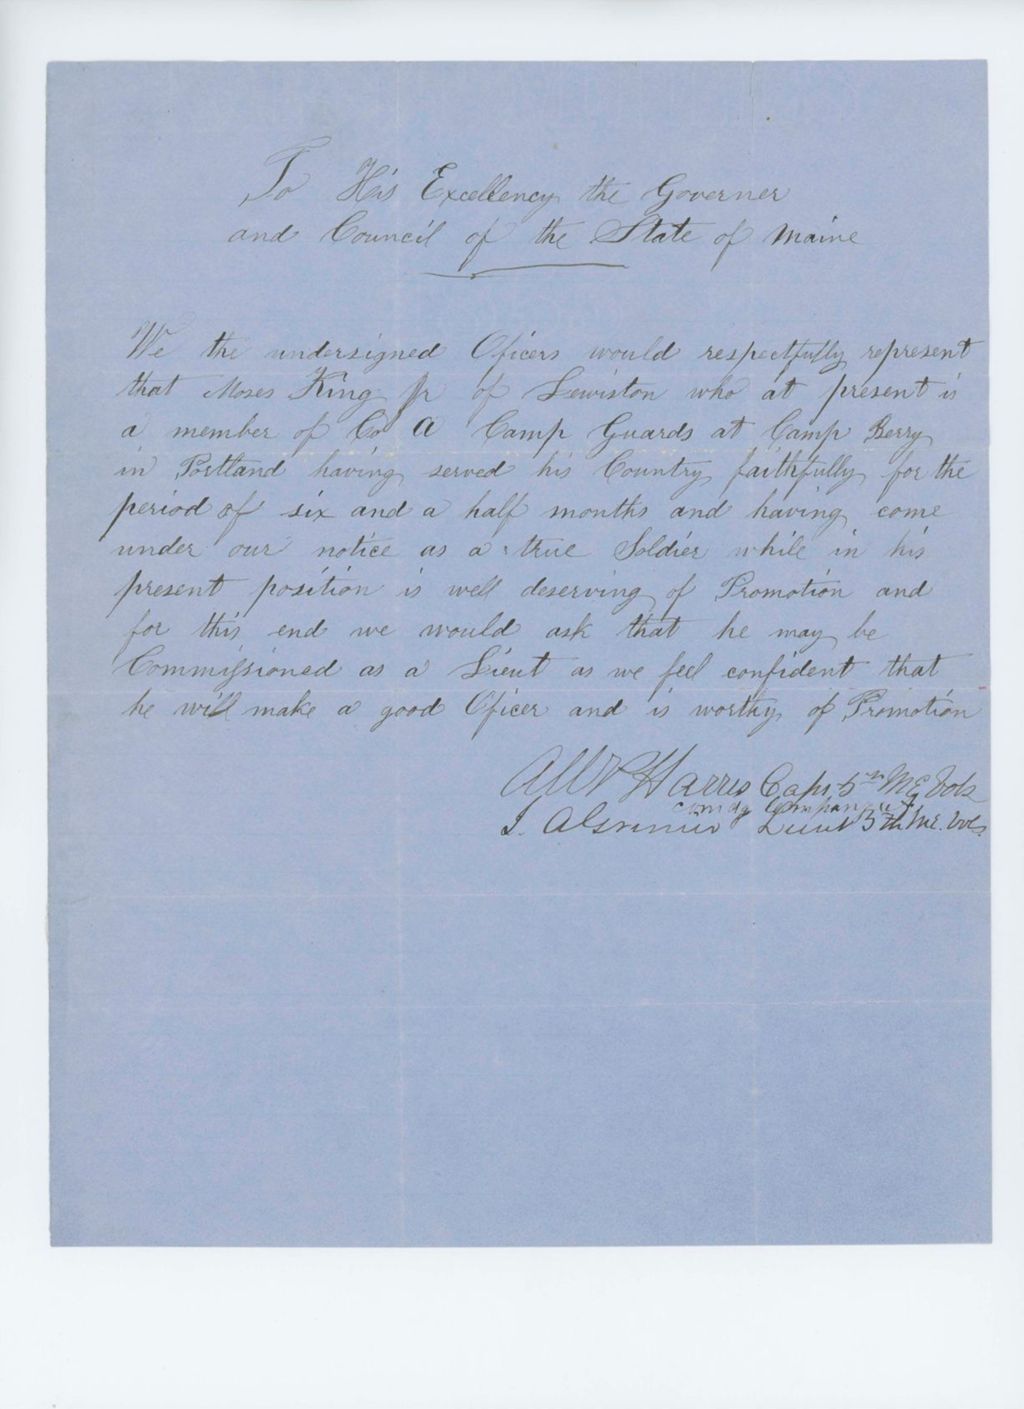 To His Excellency the Governer
and Council of the State of Maine
We the undersigned Oficers would respectfully represent
that Moses King Jr of Lewiston who at present is
a member of Co A Camp Guards at Camp Berry
in Portland having served his Country faithfully for the
period of six and a half months and having come
under our notice as a true Soldier while in his
present position is well deserving of Promotion and
for this end we would ask that he may be
Commissioned as a Lieut as we feel confident that
he will make a good Oficer and is worthy of Promotion
Harris Capt 5th ME Vols
Comdg Company
Lieut 5th Me. Vols.